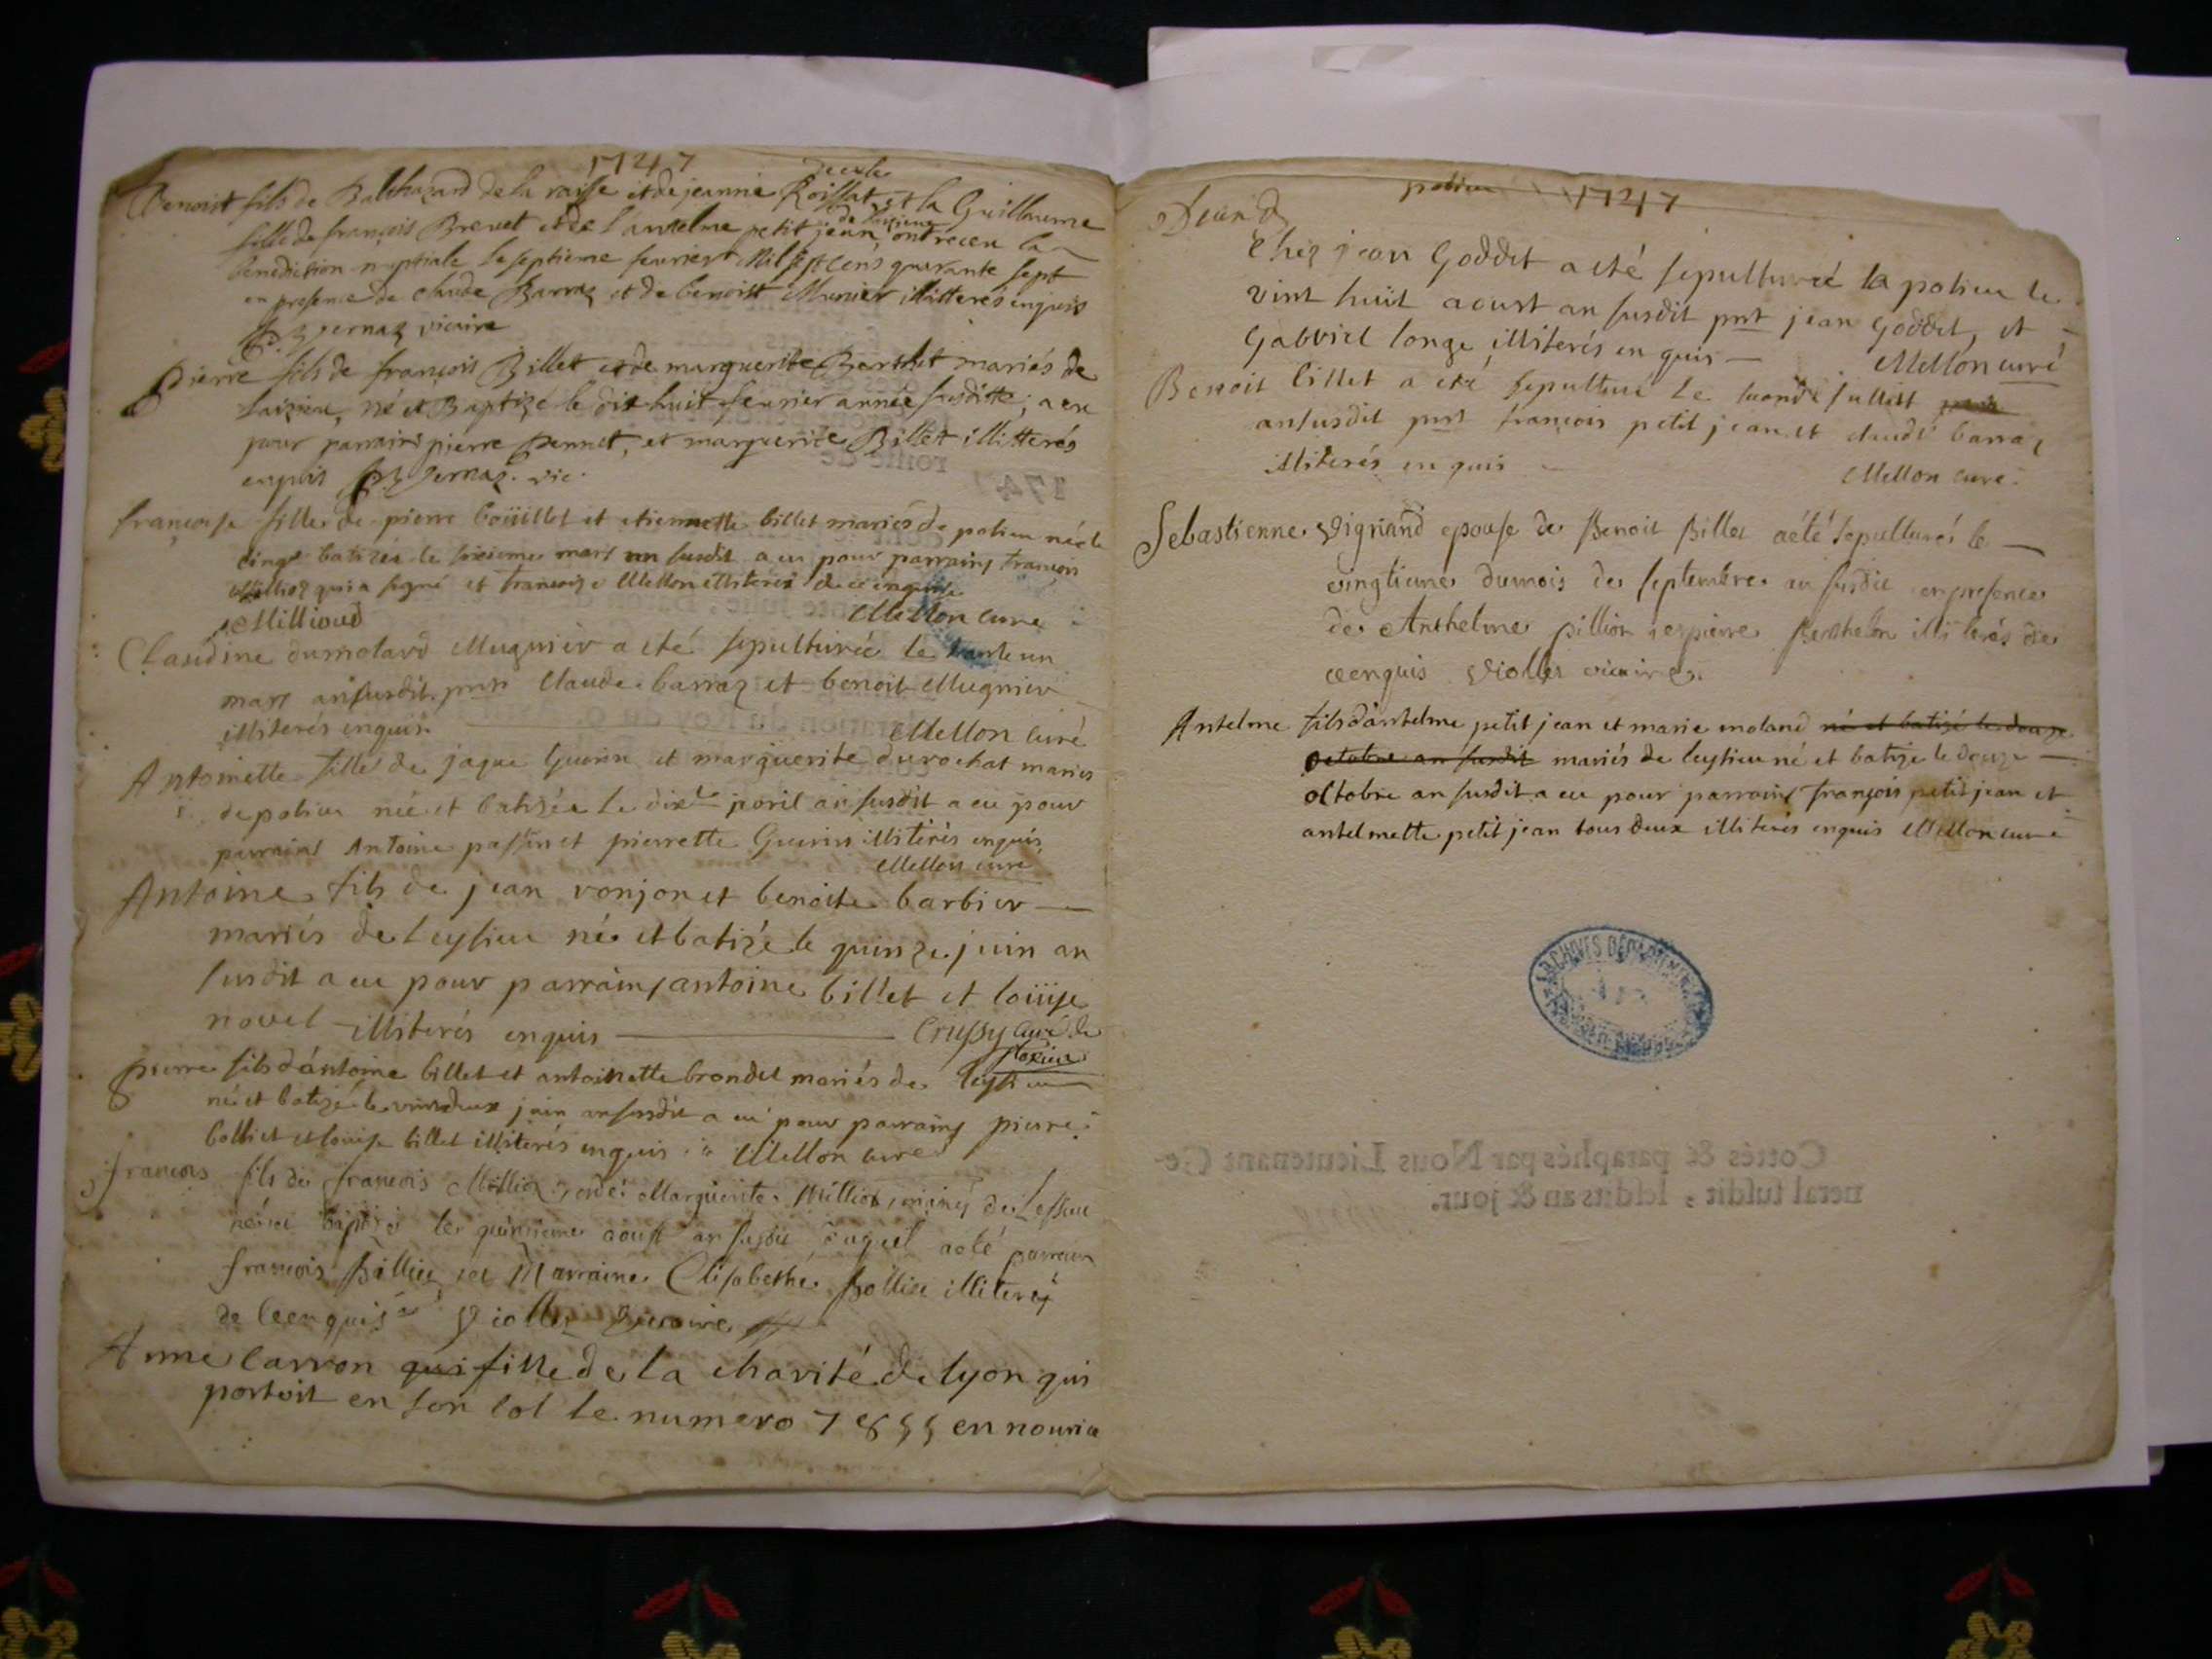 1747
Benoist fils de Balthazard de la raisse et de jeanne Roissat et la Guillaume
fille de françois Brevet et de l'antelme petit jean, de laizieu ont receu la
benediction nuptiale le septieme fevrier Mil sept cens quarante sept
en presence de claude Barraz et de benoist Munier illitterés enquis
vicaire
Pierre fils de françois Billet et de marguerite Berthet mariés de
laizieu, né et Baptizé le dix huit fevrier année susditte; a eu
pour parrains pierre pennet, et marguerite Billet illitterés
enquis vic.
françoise fille de pierre boüillet et etiennette billet mariés de polieu née le
cinq batizée le sixieme mars an susdit a eu pour parrains francois
qui a signé et francoize Mellon illiterés de ce enquise
Millioud Mellon curé
Claudine dumolard Mugnier a eté sepulturée le trante un
mars an susdit pnts Claude barraz et benoit Mugnier
illiterés enquis Mellon curé
Antoinette fille de jaque Guerin et marguerite durochat mariés
de polieu née et batizée le dixe avril an susdit a eu pour
parrains Antoine passin et pierrette Guerin illiterés enquis
Mellon curé
Antoine fils de jean vonjon et benoite barbier
mariés de leysieu né et batizé le quinze juin an
susdit a eu pour parrains antoine billet et loüise
novel illiterés enquis Crussy curé de
pierre fils d'antoine billet et antoinette brondel mariés de leysieu
né et batizé le vint deux juin an susdit a eu pour parrains pierre
bolliet et louise billet illiterés enquis Mellon curé
francois fils de francois Millioz, et de Marguerite Millioz, mariés de
né et baptizé le quinzieme aoust an susdit auquel a eté parrain
francois Bollier et Marraine Elisabethe Bollier illiterés
de ce enquis Viollet Vicaire
Anne Carron qui fille de la charité de lyon qui
portoit en son col le numero 7855 en nourice
polieu 1747
chez jean Goddet a eté sepulturée a polieu le
vint huit aoust an susdit pnt jean Goddet, et
Gabriel longe illiterés enquis Mellon curé
Benoit billet a eté sepulturé le second juillet
an susdit pnt françois petit jean et claude barraz
illiterés enquis Mellon curé
Sebastienne Vignand epouse de Benoit Billet a été sepulturée le
vingtieme du mois de septembre an susdit en presence
de Anthelme Billion et pierre Berthelon illiterés de
ce enquis Viollet vicaire
Antelme fils d'antelme petit jean et marie moland né et batizé le douze
octobre an susdit mariés de leysieu né et batizé le douze
octobre an susdit a eu pour parrains françois petit jean et
antelmette petit jean tous deux illiterés enquis Mellon curé
ARCHIVES DEPARTEMENTALES
Cottés & paraphés par Nous Lieutenant Ge-
neral susdit, lesdits an & jour.